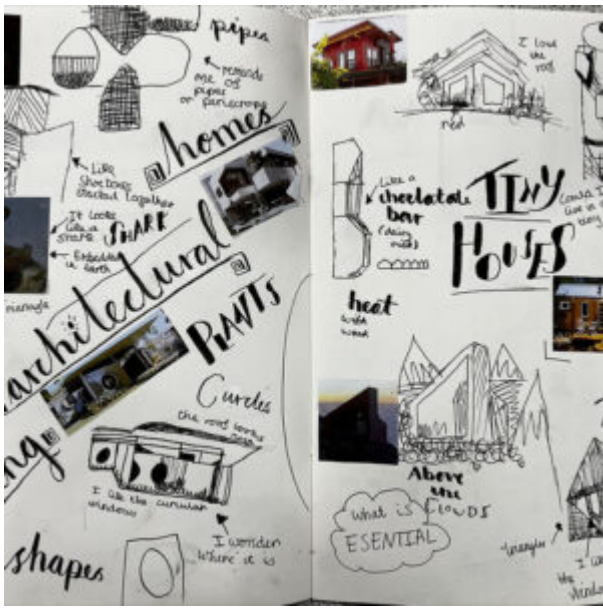 pipes
reminds
me of
pipes
or periscrope
homes
Like
Shoe boxes
stacked together
It looks
like a
SHARK
SHARK
Embedded
in earth
triangle
architectural
PLANTS
Curcles
the roof looks
I like the curcular
windows
I wonder
where it is
shapes
I love
the
roof
red
Like a
chocolate
bar
(dairy
milk)
TINY
HOUSES
Could I
live in a
tiny
heat
with
wood
Above
the
CLOUDS
what is
ESENTIAL
triangles
I like
the
window